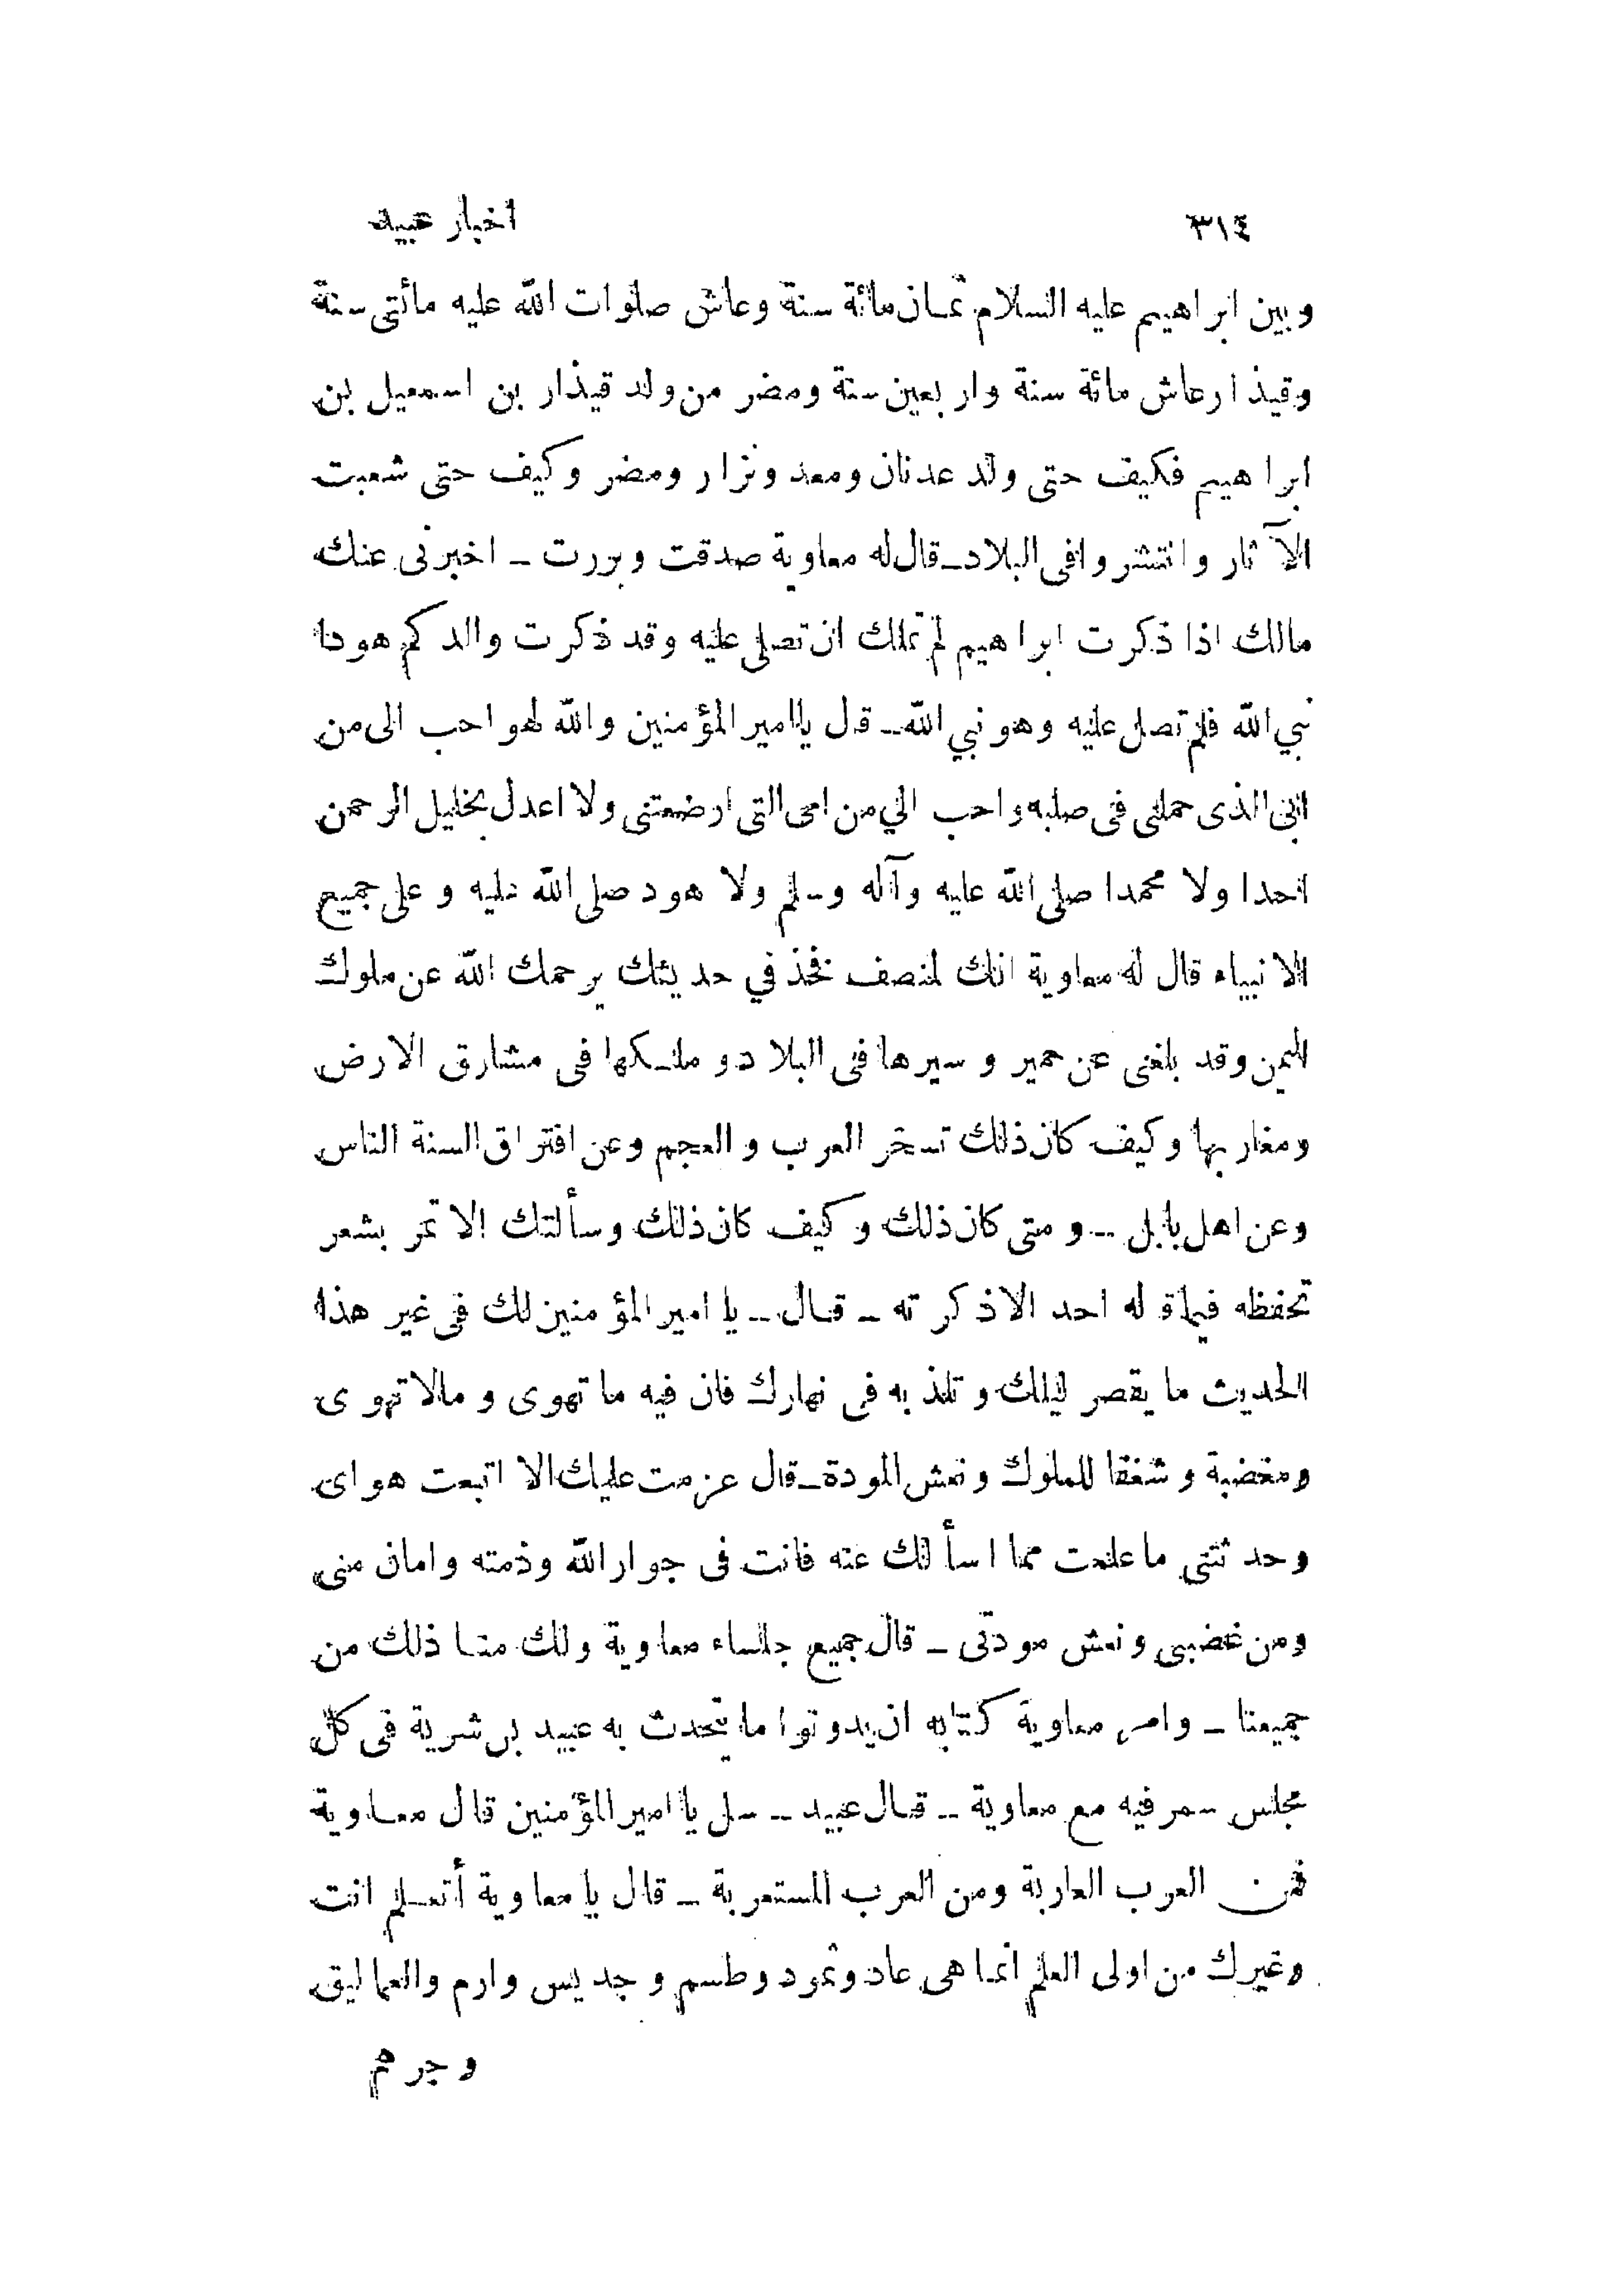 ٣١٤
اخبار عبيد
وبين ابراهيم عليه السلام ثمان مائة سنة وعاش صلوات الله عليه مائتي سنة
وقيذار عاش مائة سنة واربعين سنة ومضر من ولد قيذار بن اسمعيل بن
ابراهيم فكيف حتى ولد عدنان ومعد ونزار ومضر وكيف حتى شعبت
الآثار وانتشروا فى البلاد ــ قال له معاوية صدقت وبررت ــ اخبرنى عنك
مالك اذا ذكرت ابراهيم لم تملك ان تصلى عليه وقد ذكرت والدكم هودا
نبي الله فلم تصل عليه وهو نبي الله ــ قال يا امير المؤمنين والله لهو احب الى من
ابى الذى حملنى فى صلبه واحب الي من امى التى ارضعتنى ولا اعدل بخليل الرحمن
احدا ولا محمدا صلى الله عليه وآله وسلم ولا هود صلى الله عليه وعلى جميع
الانبياء قال له معاوية انك لمنصف فخذ في حديثك يرحمك الله عن ملوك
اليمن وقد بلغنى عن حمير وسيرها فى البلاد وملكها فى مشارق الارض
ومغاربها وكيف كان ذلك تسخر العرب والعجم وعن افتراق السنة الناس
وعن اهل بابل ــ ومتى كان ذلك وكيف كان ذلك وسألتك الا تمر بشعر
تحفظه فيما قاله احد الا ذكرته ــ قال ــ يا امير المؤمنين لك فى غير هذا
الحديث ما يقصر ليلك وتلذ به فى نهارك فان فيه ما تهوى ومالا تهوى
ومغضبة وشغفا للملوك ونعش المودة ــ قال عزمت عليك الا اتبعت هواى
وحدثتنى ما علمت مما اسألك عنه فانت فى جوار الله وذمته وامان منى
ومن غضبى ونعش مودتى ــ قال جميع جلساء معاوية ولك منا ذلك من
جميعنا ــ وامر معاوية كتابه ان يدونوا ما يتحدث به عبيد بن شرية فى كل
مجلس سمر فيه مع معاوية ــ قال عبيد ــ سل يا امير المؤمنين قال معاوية
فمن العرب العاربة ومن العرب المستعربة ــ قال يا معاوية أتعلم انت
وغيرك من اولى العلم انما هى عاد وثمود وطسم وجديس وارم والعماليق
وجرهم